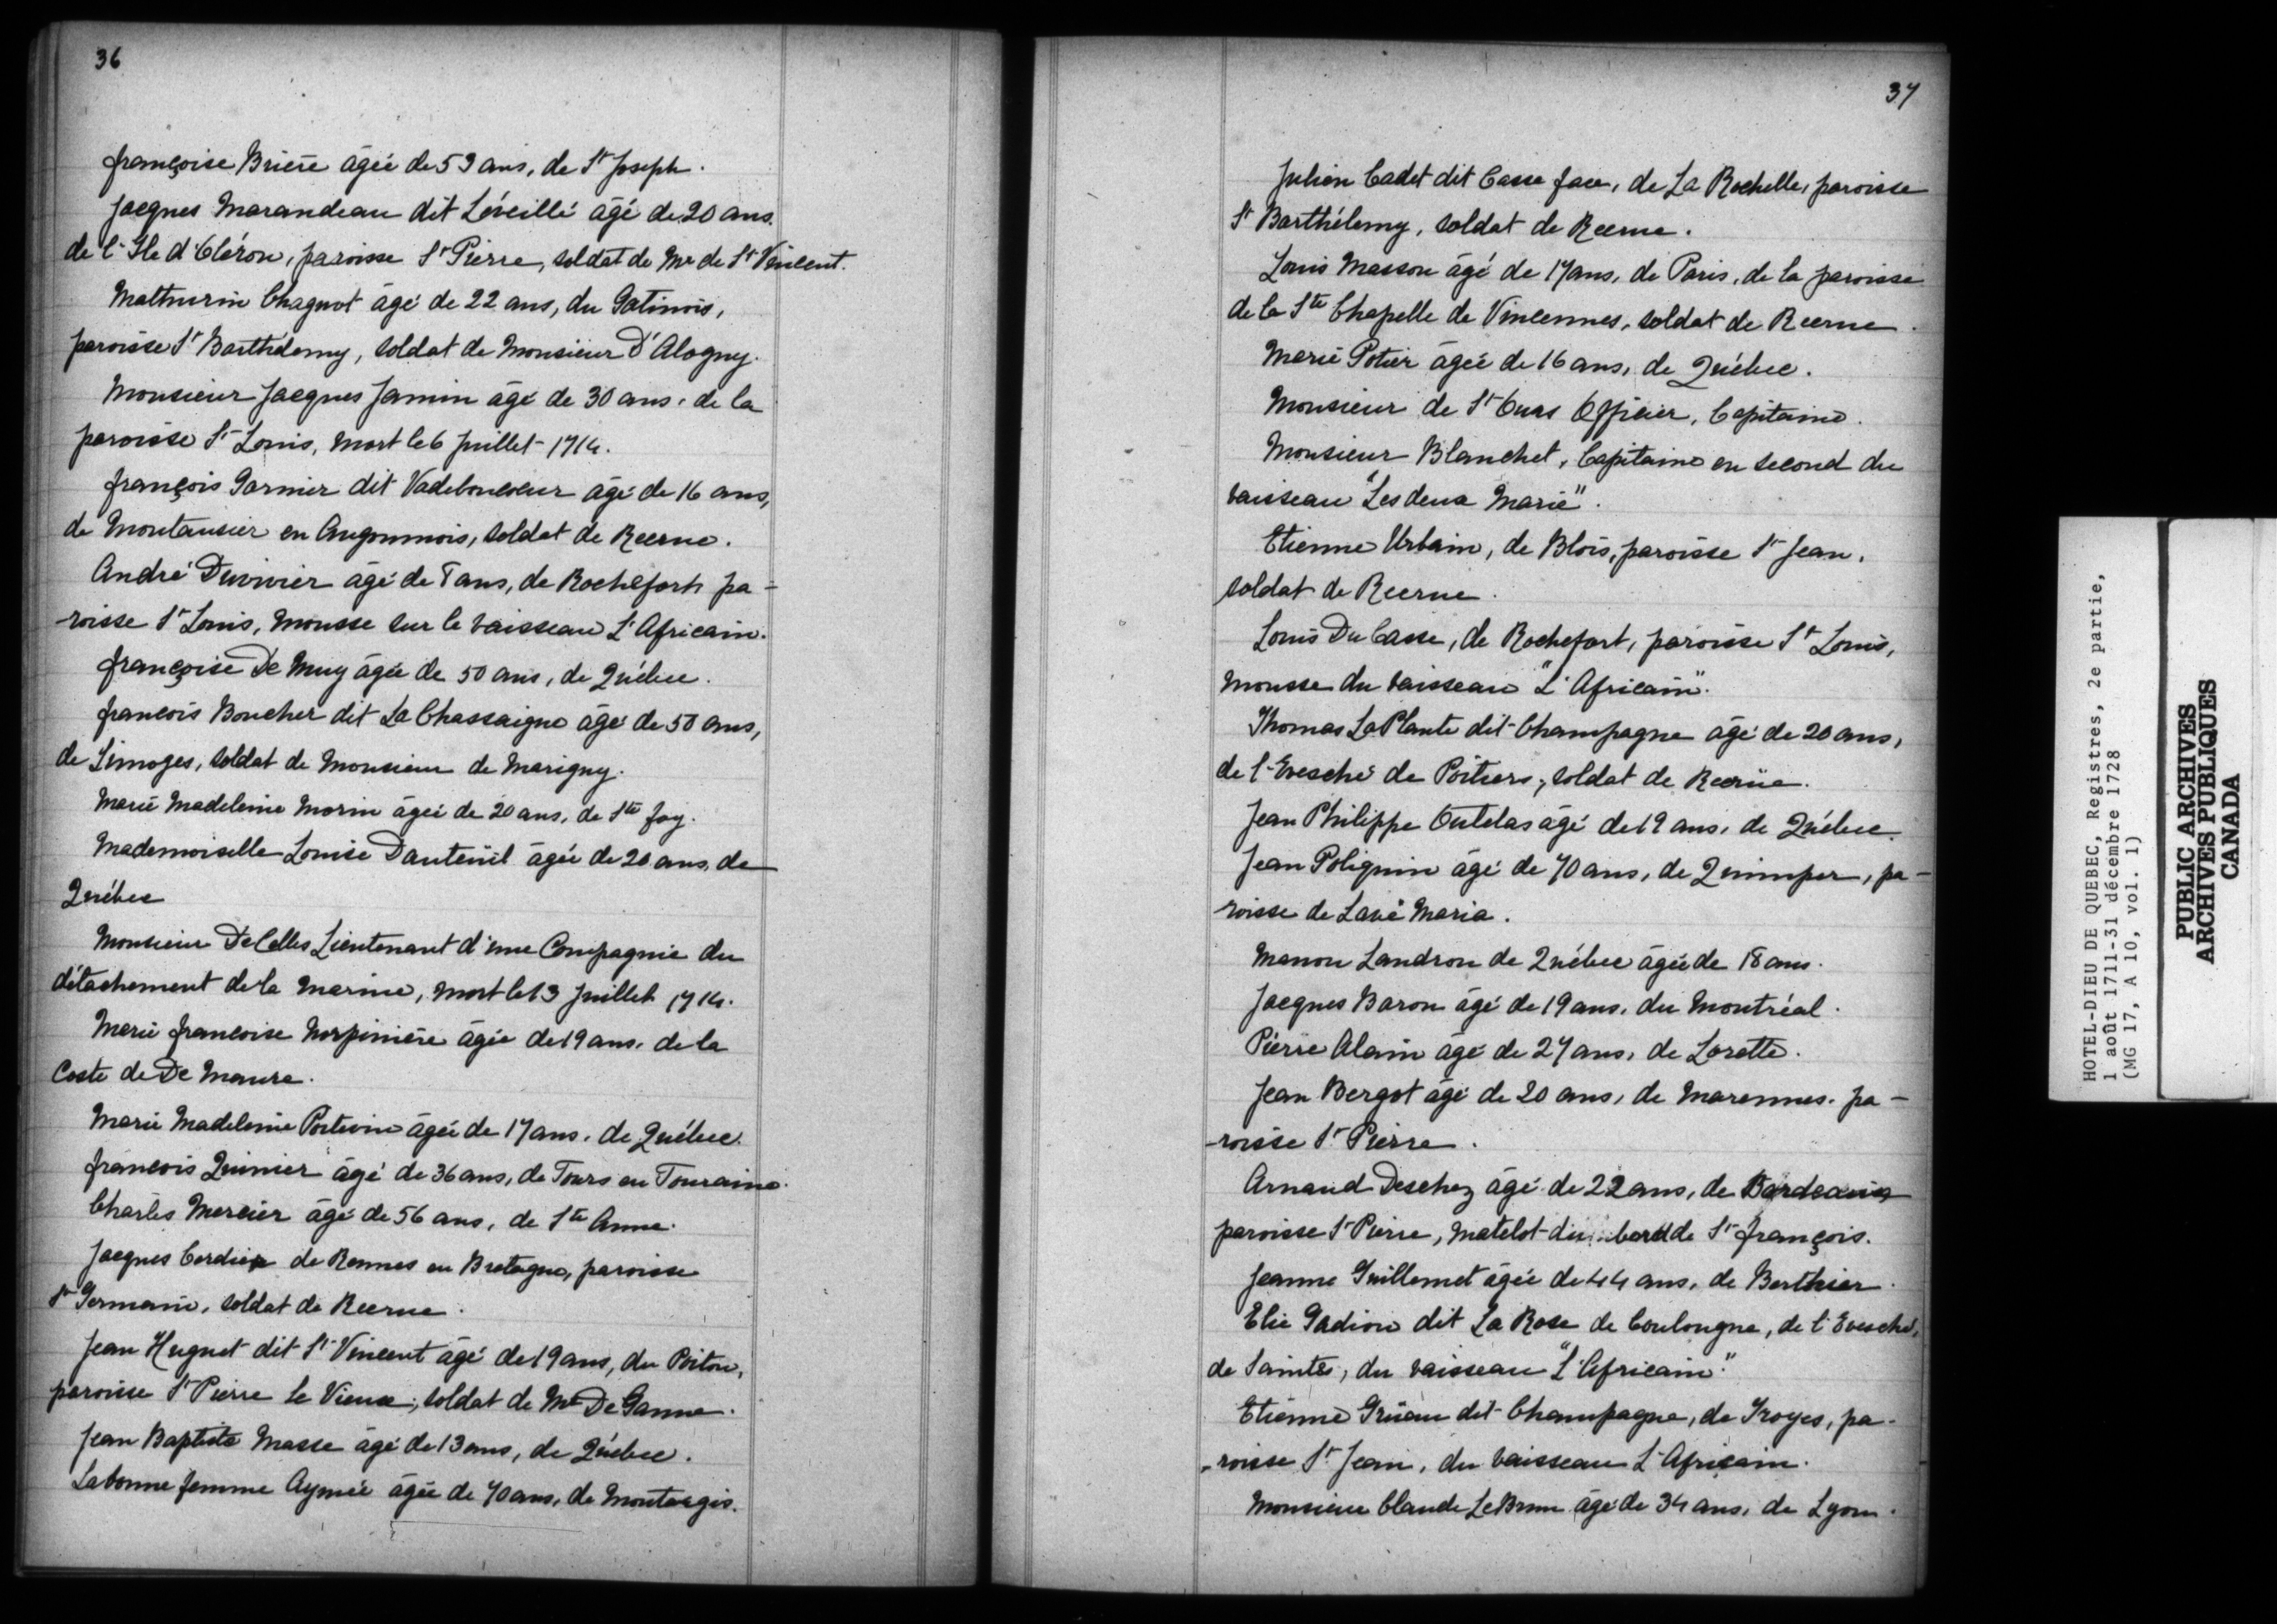 36
françoise Brière âgée de 59 ans, de St Joseph.
Jacques Marandeau dit Léveillé âgé de 20 ans.
de l'Ile d'Oléron, paroisse St Pierre, soldat de Mr de St Vincent.
Mathurin Chagnot âgé de 22 ans, du Gatinois,
paroisse St Barthélemy, soldat de Monsieur D'Alogny.
Monsieur Jacques Jamin âgé de 30 ans, de la
paroisse St Louis, mort le 6 Juillet 1714.
françois Garnier dit Vadeboncoeur âgé de 16 ans,
de Montausier en Angoumois, soldat de Recrue.
André Duvivier âgé de ans, de Rochefort, pa-
-roisse St Louis, Mousse sur le vaisseau L'Africain.
françoise De Muy âgée de 50 ans, de Québec.
francois Boucher dit La Chassaigne âgé de 50 ans,
de Limoges, soldat de Monsieur de Marigny.
Marie Madeleine Morin âgée de 20 ans, de Ste foy.
Mademoiselle Louise Dauteüil âgée de 20 ans, de
Québec
Monsieur De Celles Lieutenant d'une Compagnie du
détachement de la Marine, mort le 13 Juillet 1714.
Marie francoise Norpinière âgée de 19 ans, de la
Coste de De Maure.
Marie Madeleine Poitevin âgée de 17 ans, de Québec.
francois Quinier âgé de 36 ans, de Tours en Touraine.
Charles Mercier âgé de 56 ans, de Ste Anne.
Jacques Cordier de Rennes en Bretagne, paroisse
St Germain, soldat de Recrue.
Jean Huguet dit St Vincent âgé de 19 ans, du Poitou,
paroisse St Pierre le Vieux, soldat de Mr De Ganne.
Jean Baptiste Masse âgé de 13 ans, de Québec.
La bonne femme Aymée âgée de 70 ans, de Montargis.
37
Julien Cadet dit Casse face, de La Rochelle, paroisse
St Barthélemy, soldat de Recrue.
Louis Masson âgé de 17 ans, de Paris, de la paroisse
de la Ste Chapelle de Vincennes, soldat de Recrue.
Marie Potier âgée de 16 ans, de Québec.
Monsieur de St Ours Officier, Capitaine.
Monsieur Blanchet, Capitaine en second du
vaisseau "Les deux Marie".
Etienne Urbain, de Blois, paroisse St Jean,
soldat de Recrue.
Louis Du Casse, de Rochefort, paroisse St Louis,
mousse du vaisseau "L'Africain".
Thomas La Plante dit Champagne âgé de 20 ans,
de l'Evesché de Poitiers, soldat de Recrüe.
Jean Philippe Outelas âgé de 19 ans, de Québec.
Jean Poliquin âgé de 70 ans, de Quimper, pa-
-roisse de Lavé Maria.
Manon Landron de Québec âgée de 18 ans.
Jacques Baron âgé de 19 ans, du Montréal.
Pierre Alain âgé de 27 ans, de Lorette.
Jean Bergot âgé de 20 ans, de Marennes, pa-
-roisse St Pierre.
Arnaud Deschez âgé de 22 ans, de Bordeaux
paroisse St Pierre, matelot du bord de St françois.
Jeanne Guillemet âgée de 44 ans, de Berthier.
Elie Gadiou dit La Rose de Coulongne, de l'Evesché,
de Saintes, du vaisseau "L'Africain."
Etienne Grüau dit Champagne, de Troyes, pa-
-roisse St Jean, du vaisseau L'Africain.
Monsieur Claude Le Brun âgé de 34 ans, de Lyon.
HOTEL-DIEU DE QUEBEC, Registres, 2e partie,
1 août 1711-31 décembre 1728
(MG 17, A 10, vol. 1)
PUBLIC ARCHIVES
ARCHIVES PUBLIQUES
CANADA